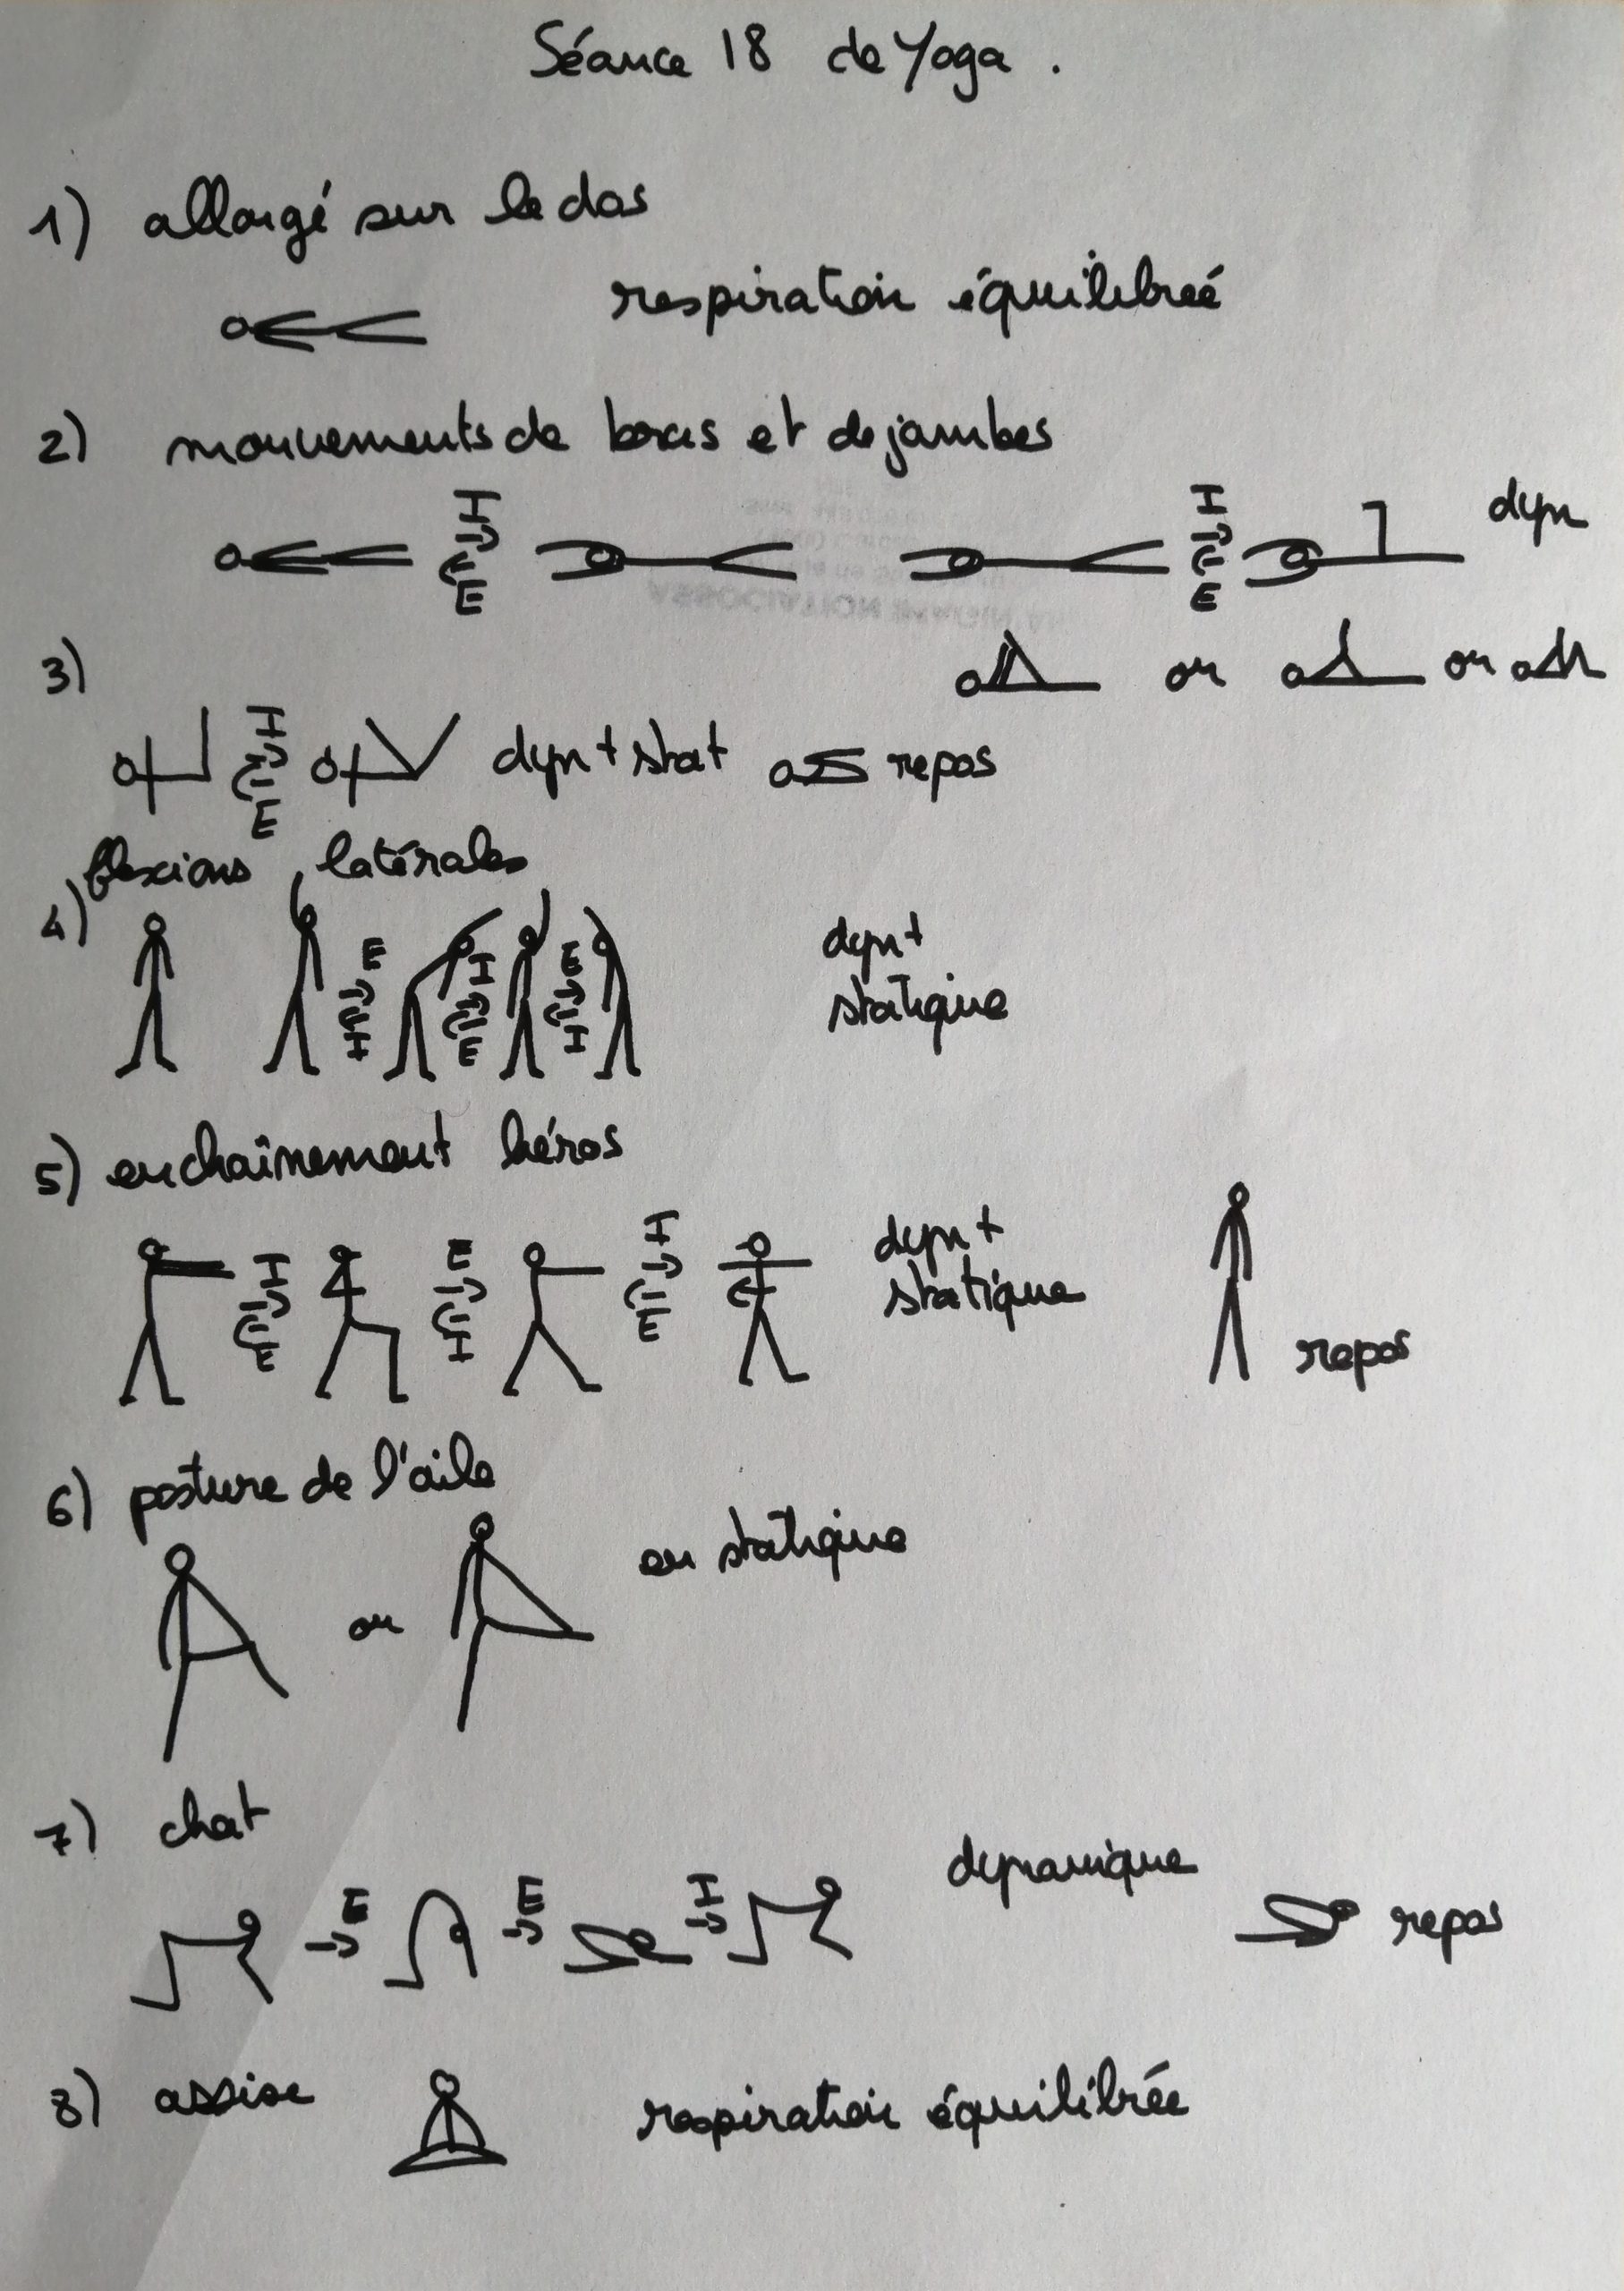 Séance 18 de Yoga.
1) allongé sur le dos
respiration équilibreé
2) mouvements de bras et de jambes
I
E
I
E
dyn
3)
ou
ou
I
E
dyn + stat
repos
flexions latérales
4)
E
I
I
E
E
I
dyn +
statique
5) enchaînement héros
I
E
E
I
I
E
dyn +
statique
repos
6) posture de l'aile
ou
en statique
7) chat
E
E
I
dynamique
repos
8) assise
respiration équilibrée